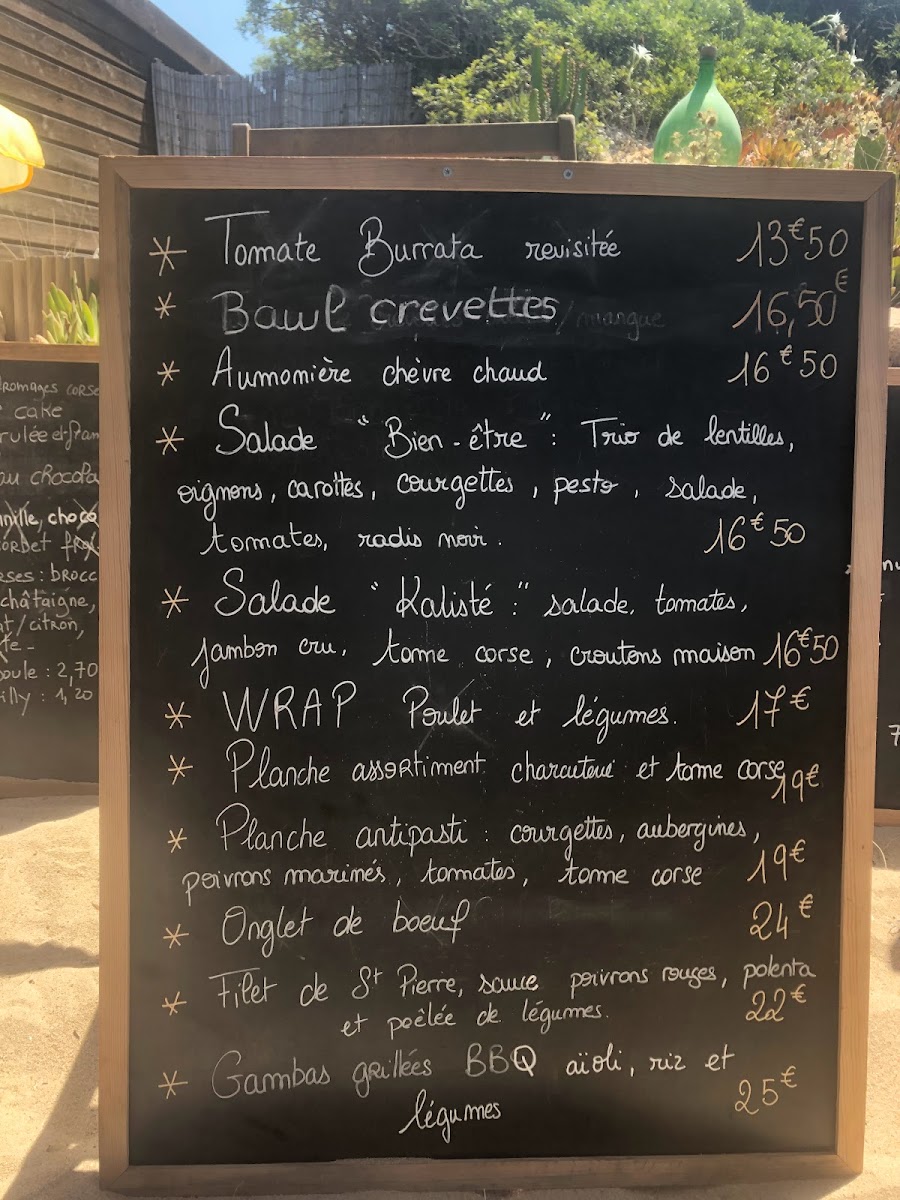 * Tomate Burrata revisitée 13€50
* Bawl crevettes 16,50€
/mangue
* Aumonière chèvre chaud 16€50
* Salade "Bien-être": Trio de lentilles,
oignons, carottes, courgettes, pesto, salade,
tomates, radis noir. 16€50
* Salade "Kalisté:" salade, tomates,
jambon cru, tome corse, croutons maison 16€50
* WRAP Poulet et légumes. 17€
* Planche assortiment charcuterie et tome corse 19€
* Planche antipasti: courgettes, aubergines,
poivrons marinés, tomates, tome corse 19€
* Onglet de boeuf 24€
* Filet de St Pierre, sauce poivrons rouges, polenta
et poêlée de légumes. 22€
* Gambas grillées BBQ aïoli, riz et
légumes 25€
romages corse
cake
rulée et flam
au chocola
nille, choco
orbet
ses: brocc
châtaigne,
t/citron,
te-
oule: 2,70
illy: 1,20